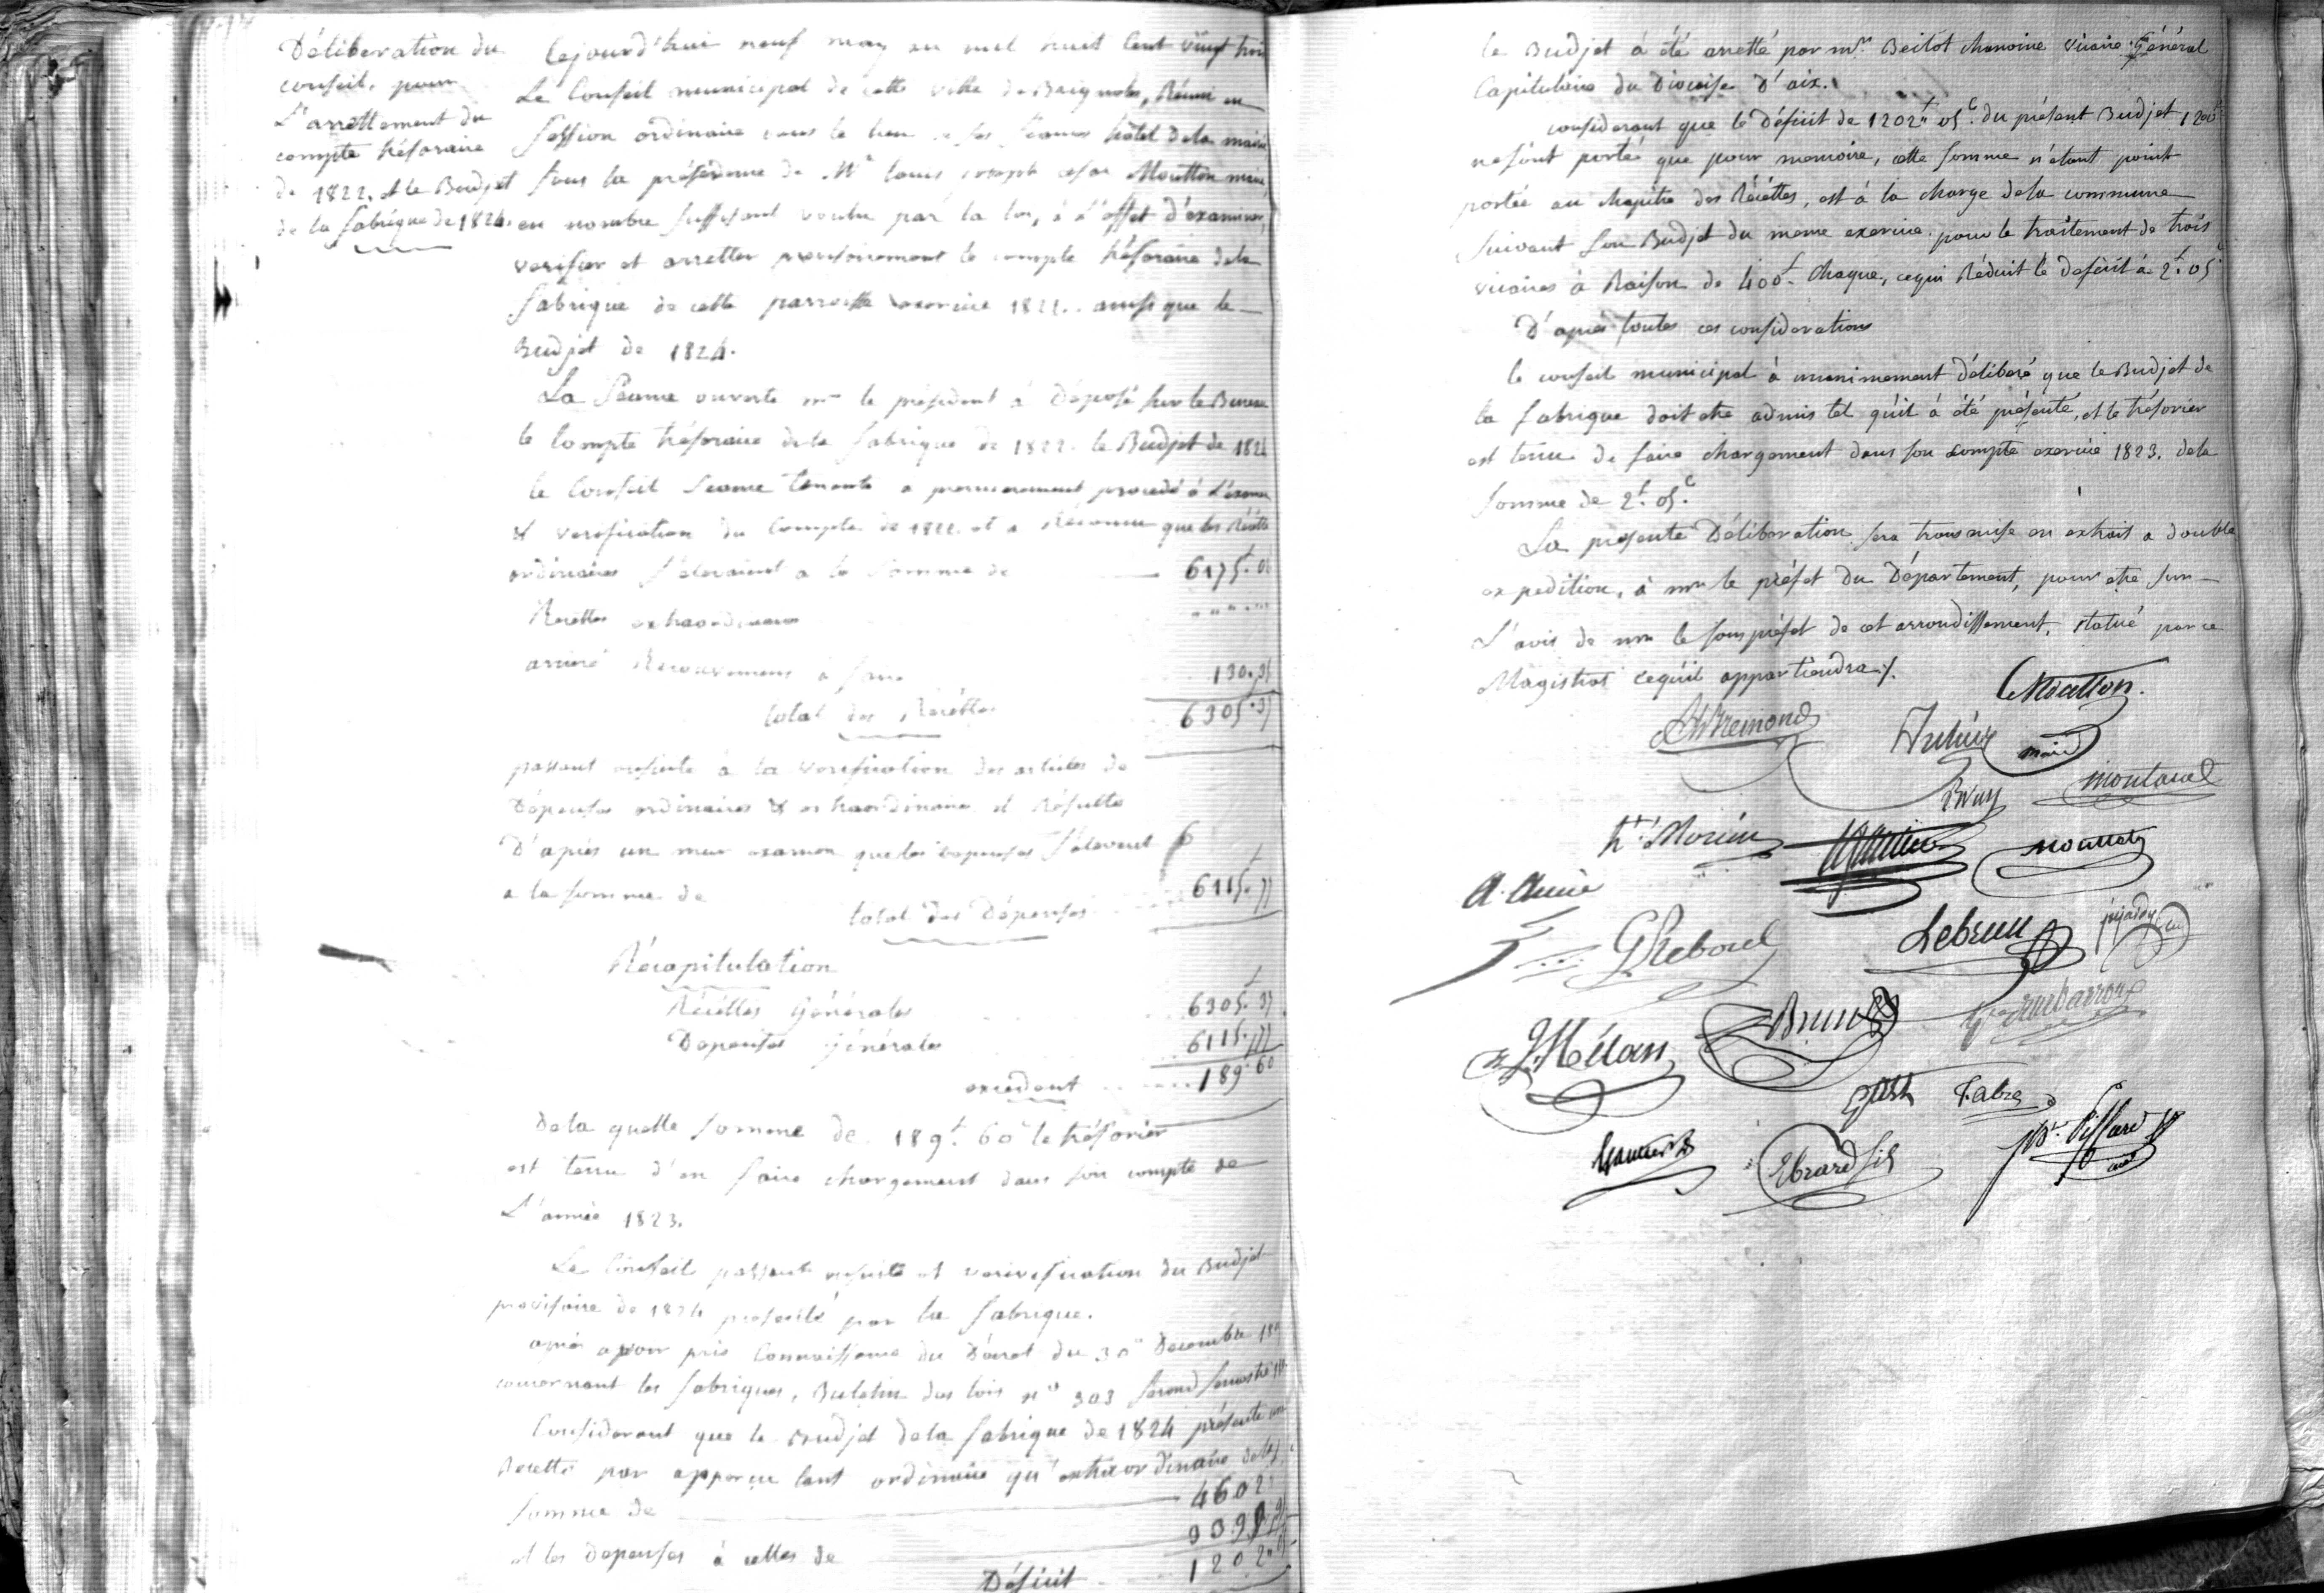 Déliberation du
conseil, pour
L'arrettement du
compte trésoraire
de 1822. et le Budjet
de la fabrique de 1824.
Cejourd'hui neuf may an mil huit Cent vingt trois
Le Conseil municipal de cette ville de Brignoles, Réuni en
session ordinaire dans le lieu de ses séances hôtel dela mairie
sous la présidence de Mr louis joseph cesar Moutton maire,
en nombre suffisant voulu par la loi, à l'effet d'examiner,
verifier et arretter provisoirement le compte trésoraire dela
fabrique de cette parroisse exercice 1822. ainsi que le
Budjet de 1824.
La Séance ouverte mr le président à déposé sur le Bureau
le Compte trésoraire dela fabrique de 1822. le Budjet de 1824
le Conseil Seance tenante a premierement procedé à l'examen
& verification du Compte de 1822. et a Réconnu que les Récettes
ordinaires s'elevaient a la somme de 6175.
Recettes extraordinaires
arriéré Recouvremens à faire 130.35
total des Récettes 6305.37
passant ensuite à la verification des articles de
Dépenses ordinaires & extraordinaire il Résulte
D'après un mur examen que les depenses s'élevent
a la somme de
total des Dépenses 6115.77
Récapitulation
Récettes Générales 6305.37
Depenses Générales 6115.77
excedent 189.60
dela quelle somme de 189f. 60c le trésorier
est tenu d'en faire chargement dans son compte de
L'année 1823.
Le Conseil passant ensuite et verivification du Budjet
provisoire de 1824 presenté par la fabrique.
après avoir pris Connaissance du Décret du 30 Decembre
concernant les fabriques, Buletin des lois no 303 second semestre
Considerant que le Budjet dela fabrique de 1824 présente une
Recette par apperçu tant ordinaire qu'extraordinaire dela
somme de 4602
et les depenses à celles de
Déficit 1202
le Budjet à été arretté par mr. Beitot chanoine vicaire Général
Capitulaire du Diocèse D'aix.
considerant que le Déficit de 1202f 05c. du présent Budjet 1200f
ne sont porté que pour memoire, cette somme n'étant point
portée au chapitre des Récettes, est à la charge dela commune
suivant son Budjet du meme exercice pour le traitement de trois
vicaires à Raison de 400f. chaque, cequi Réduit le deficit à 2f. 05c
D'après toutes ces considerations
le conseil municipal à unanimement déliberé que le Budjet de
la fabrique doit etre admis tel qu'il à été présenté, et le trésorier
est tenu de faire chargement dans son compte exercice 1823. dela
somme de 2f. 05c
La presente Déliberation sera transmise en extrait a double
expedition, à mr le préfet du Département, pour etre sur
L'avis de mr le sous préfet de cet arrondissement, statué par ce
Magistrat cequ'il appartiendra./.
Moutton.
maire
Bremond
Bruy
montaud
hte. Morin
A. Amic
G Reboul
Lebrun
Mélan
Brun
Gast
Fabre
Ebrard fils